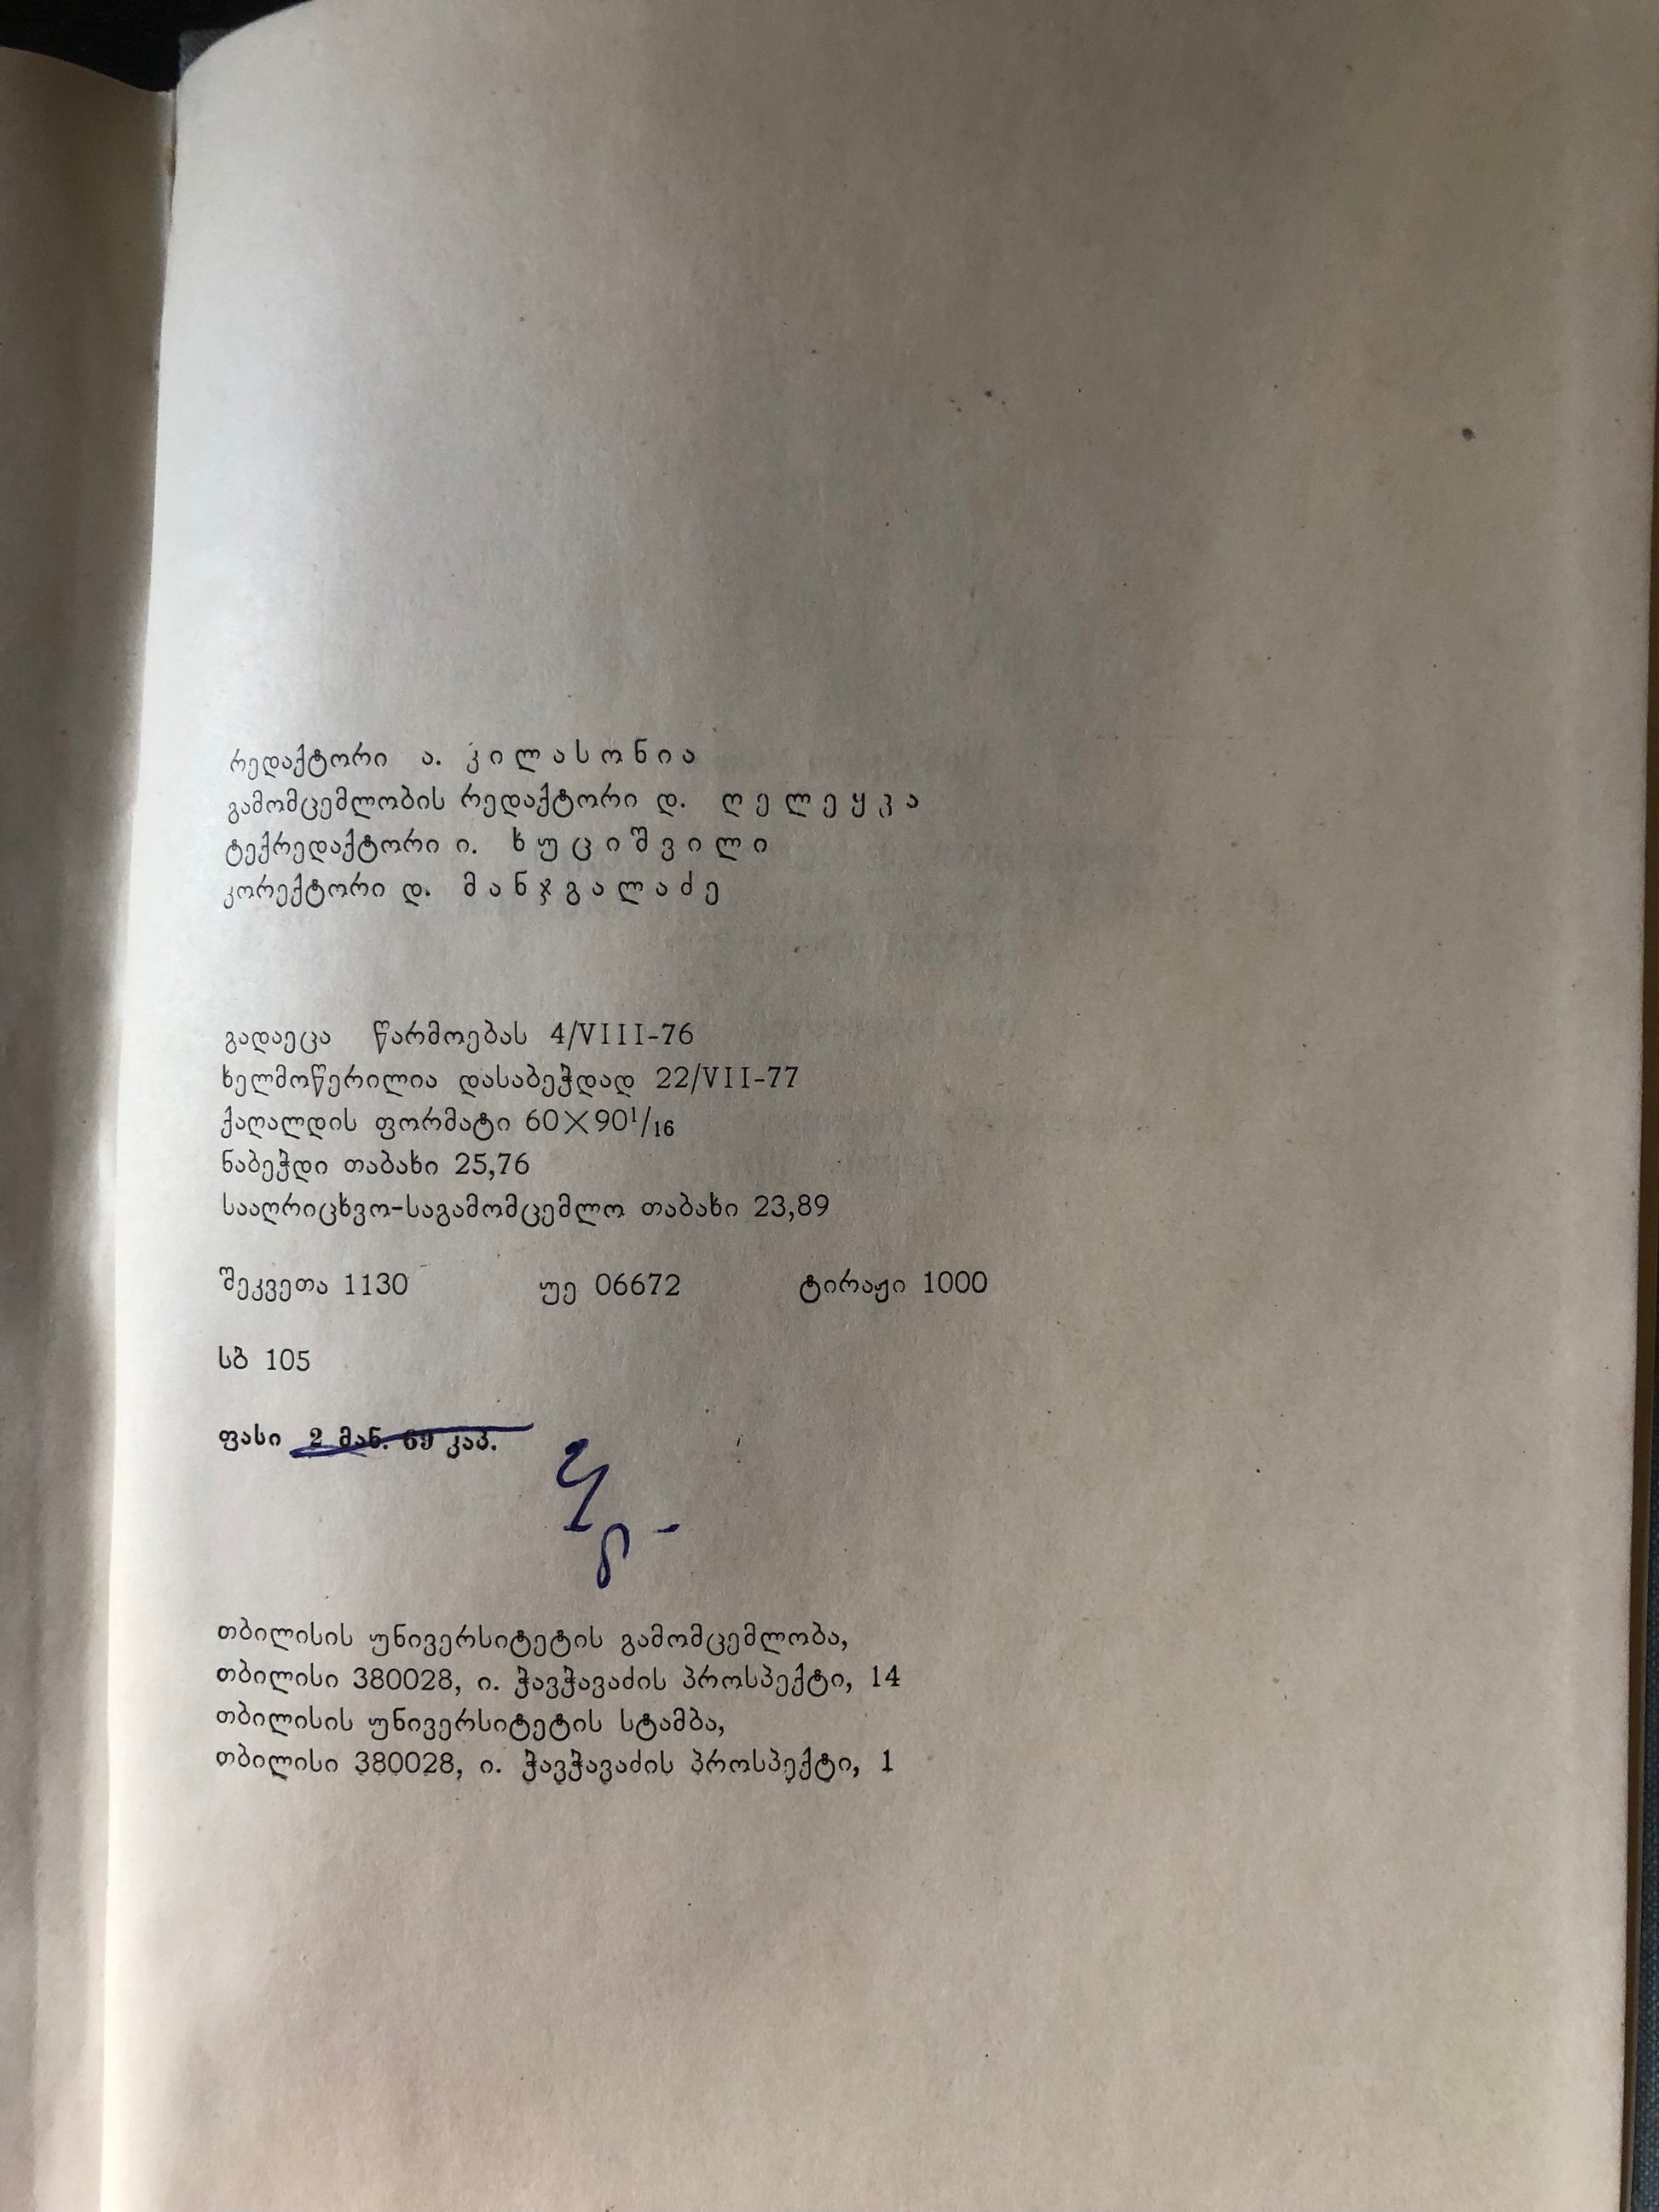 რედაქტორი ა. კილასონია
გამომცემლობის რედაქტორი დ. ღელეყვა
ტექრედაქტორი ი. ხუციშვილი
კორექტორი დ. მანჯგალაძე
გადაეცა წარმოებას 4/VIII-76
ხელმოწერილია დასაბეჭდად 22/VII-77
ქაღალდის ფორმატი 60×90¹/₁₆
ნაბეჭდი თაბახი 25,76
სააღრიცხვო-საგამომცემლო თაბახი 23,89
შეკვეთა 1130 უე 06672 ტირაჟი 1000
სბ 105
ფასი 2 მან. 69 კაპ.
თბილისის უნივერსიტეტის გამომცემლობა,
თბილისი 380028, ი. ჭავჭავაძის პროსპექტი, 14
თბილისის უნივერსიტეტის სტამბა,
თბილისი 380028, ი. ჭავჭავაძის პროსპექტი, 1